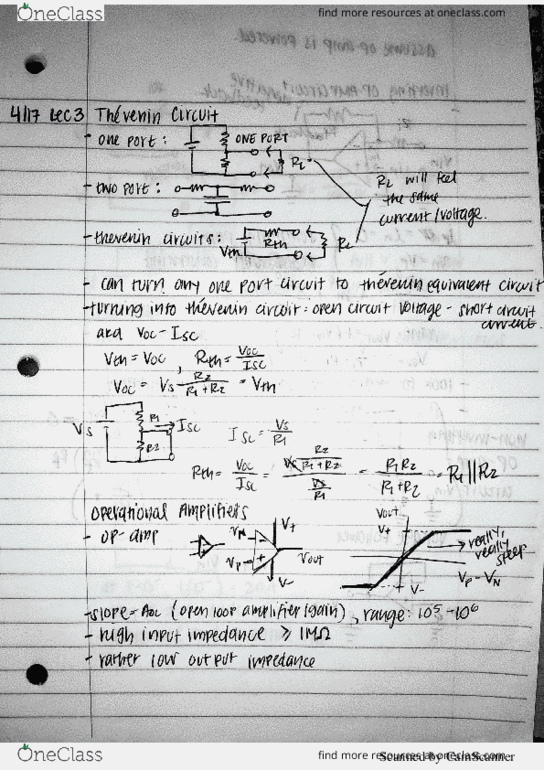 OneClass
find more resources at oneclass.com
4/17 Lec 3 Thévenin Circuit
- one port: ONE PORT RL
- two port:
RL will feel
the same
current/voltage.
- thevenin circuits: Vth Rth RL
- can turn any one port circuit to thévenin equivalent circuit
- turning into thévenin circuit: open circuit voltage - short circuit
current.
aka Voc - Isc
Vth = Voc , Rth = Voc/Isc
Voc = Vs R2/(R1+R2) = Vth
Vs R1 R2 Isc
Isc = Vs/R1
Rth = Voc/Isc = (Vs R2/(R1+R2))/(Vs/R1) = R1R2/(R1+R2) = R1||R2
Operational Amplifiers
- op-amp
VN VP V+ V- Vout
Vout V+ V- VP - VN
really,
really
steep
- slope = AOL (open loop amplifier/gain), range: 10^5 - 10^6
- high input impedance ≥ 1MΩ
- rather low output impedance
OneClass
find more resources at oneclass.com
Scanned by CamScanner